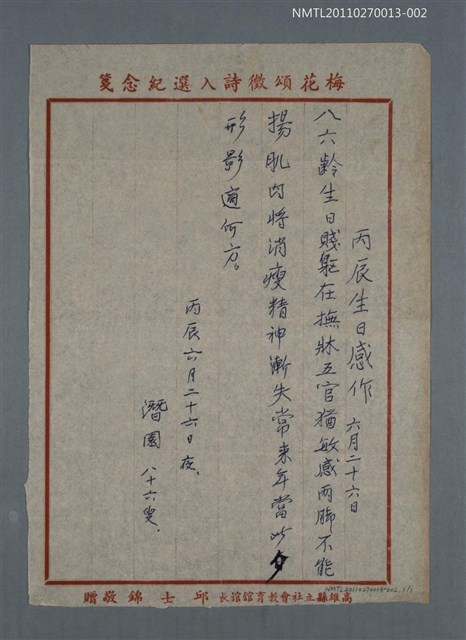 NMTL20110270013-002
梅花頌徵詩入選紀念箋
丙辰生日感作 六月二十六日
八六齡生日賤軀在撫牀五官猶敏感兩脚不能
揚肌肉將消瘦精神漸失常来年當此夕
形影適何方。
丙辰六月二十六日夜、
潛園 八十六叟、
高雄縣立社會教育館館長 邱士錦敬贈
NMTL20110270013-002, 1/1